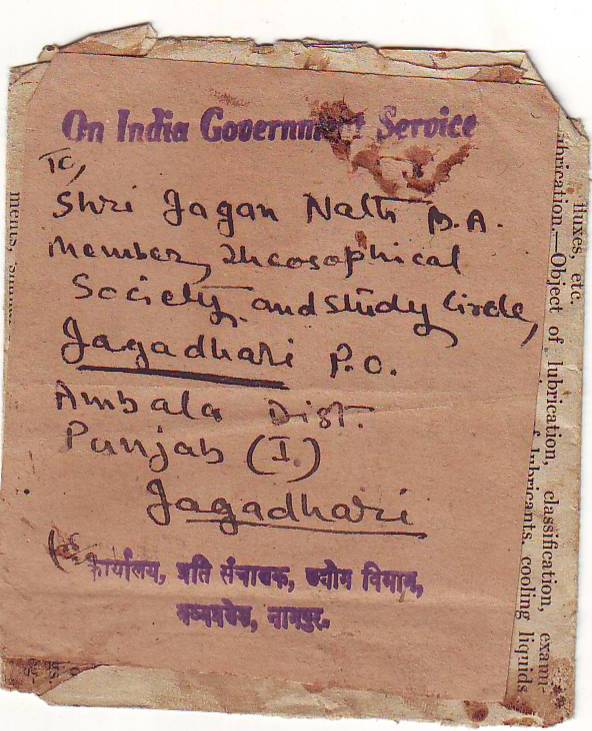 On India Government Service
To,
Shri Jagan Nath B.A.
Member, Theosophical
Society and Study Circle,
Jagadhari P.O.
Ambala Dist.
Punjab (I.)
Jagadhari
कार्यालय, प्रति संचालक, उद्योग विभाग,
मध्यप्रदेश, नागपुर.
fluxes, etc.
lubrication.—Object of lubrication, classification, exam-
lubricants, cooling liquids